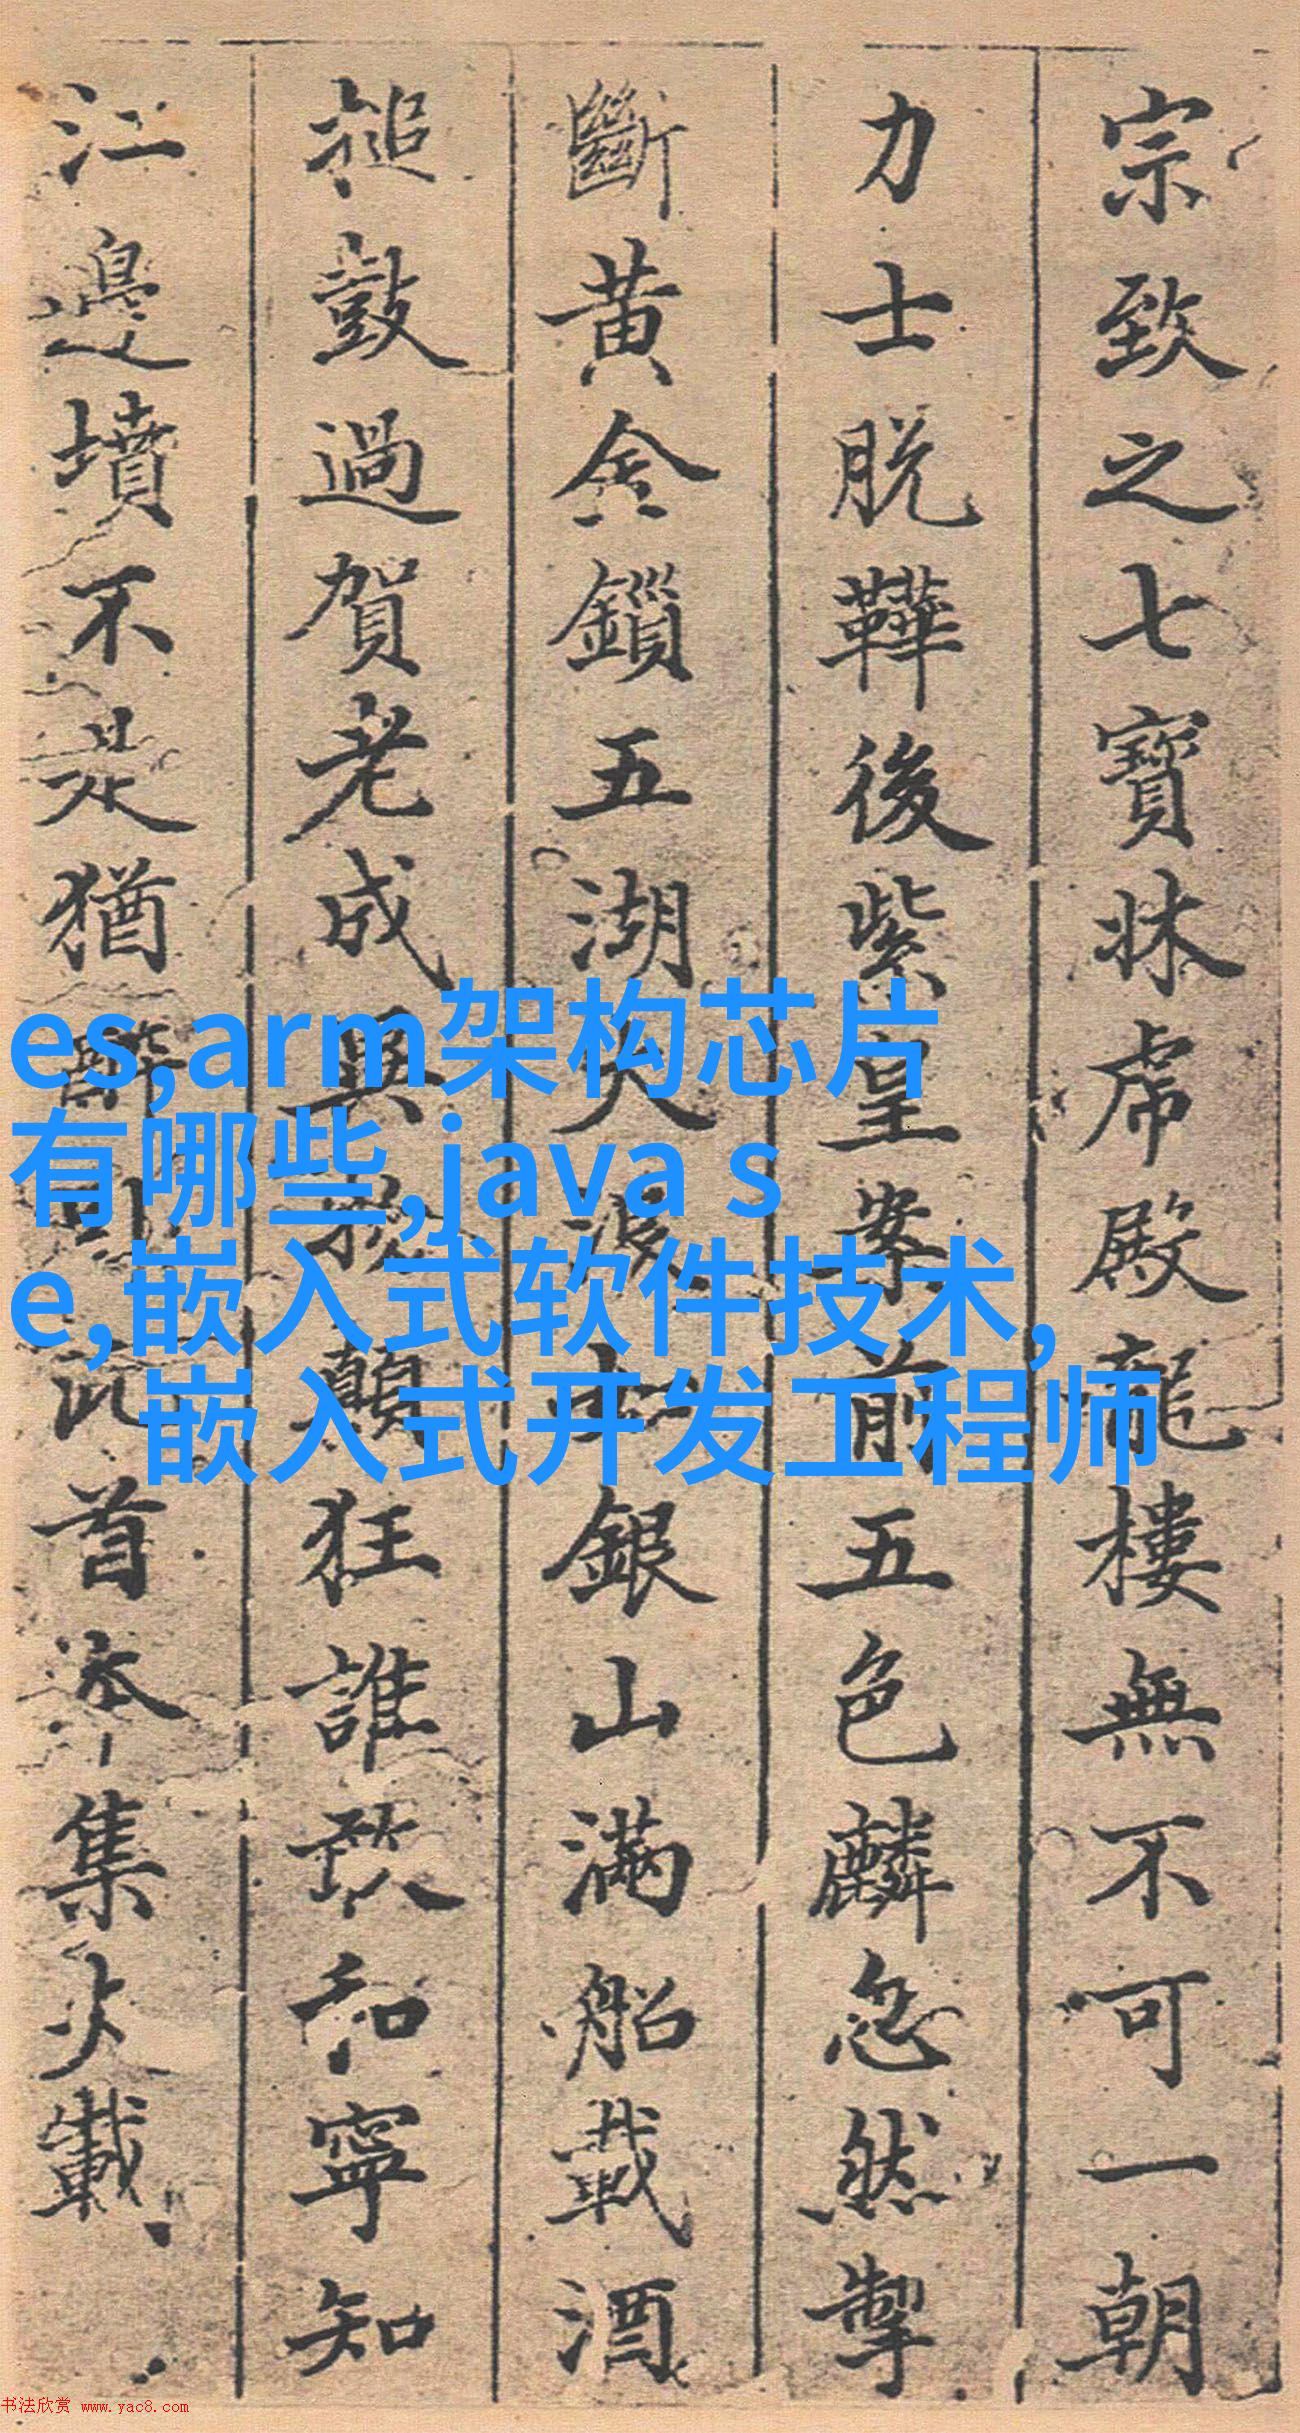 宗致之七寶牀虎殿龍樓無不可一朝
力士脱鞾後紫皇案前五色麟忽然掣
斷黄金鎖五湖大浪如銀山滿船載酒
撾鼓過賀老成異物顛狂誰敢和寧知
江邊墳不是猶醉卧此首本集不載
es,arm架构芯片
有哪些,java s
e,嵌入式软件技术,
嵌入式开发工程师
书法欣赏 www.yac8.com